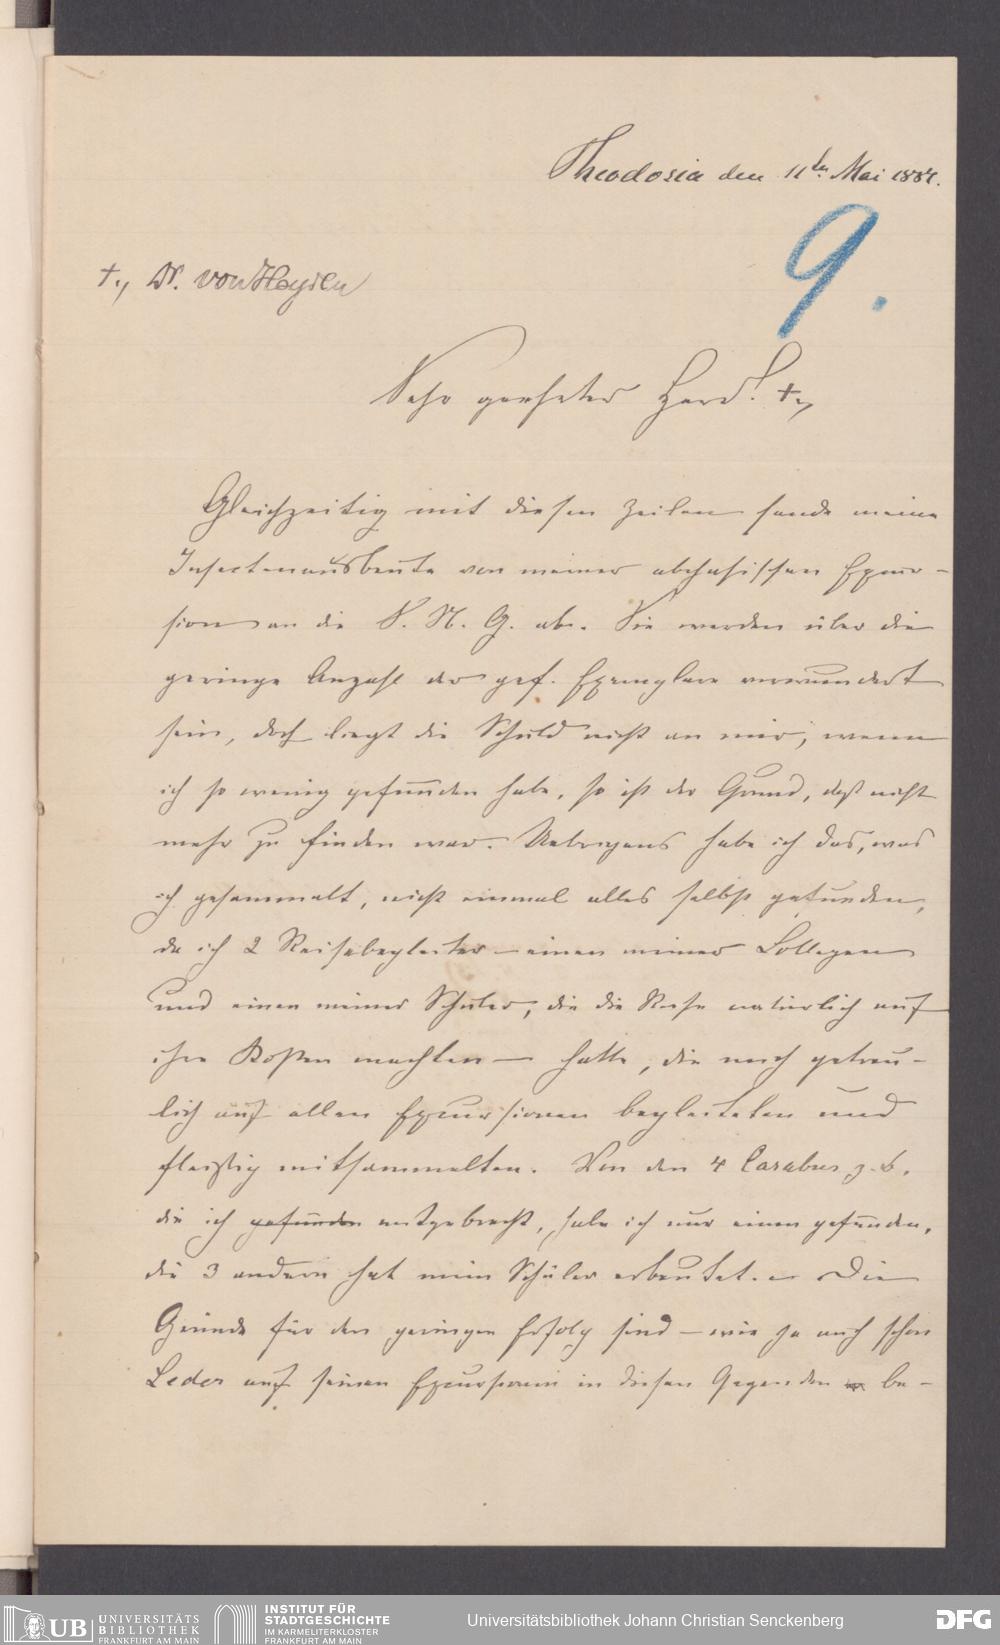 Theodosia den 11ten Mai 1884.
9.
+, Dr. von Heyden
Sehr geehrter Herr! +,
Gleichzeitig mit diesen Zeilen sende meine
Insectenausbeute von meiner abchasischen Excur-
sion an die S. N. G. ab. Sie werden über die
geringe Anzahl der gef. Exemplare verwundert
sein, doch liegt die Schuld nicht an mir, wenn
ich so wenig gefunden habe, so ist der Grund, daß nicht
mehr zu finden war. Uebrigens habe ich das, was
ich gesammelt, nicht einmal alles selbst gefunden,
da ich 2 Reisebegleiter – einen meiner Collegen
und einen meiner Schüler, die die Reise natürlich auf
ihre Kosten machten – hatte, die mich getreu-
lich auf allen Excursionen begleiteten und
fleißig mitsammelten. Von den 4 Carabus z. b.
die ich gefunden mitgebracht, habe ich nur einen gefunden,
die 3 andern hat mein Schüler erbeutet. – Die
Gründe für den geringen Erfolg sind – wie ja auch schon
Leder auf seinen Excursionen in diesen Gegenden be-
UB UNIVERSITÄTS
BIBLIOTHEK
FRANKFURT AM MAIN
INSTITUT FÜR
STADTGESCHICHTE
IM KARMELITERKLOSTER
FRANKFURT AM MAIN
Universitätsbibliothek Johann Christian Senckenberg
DFG